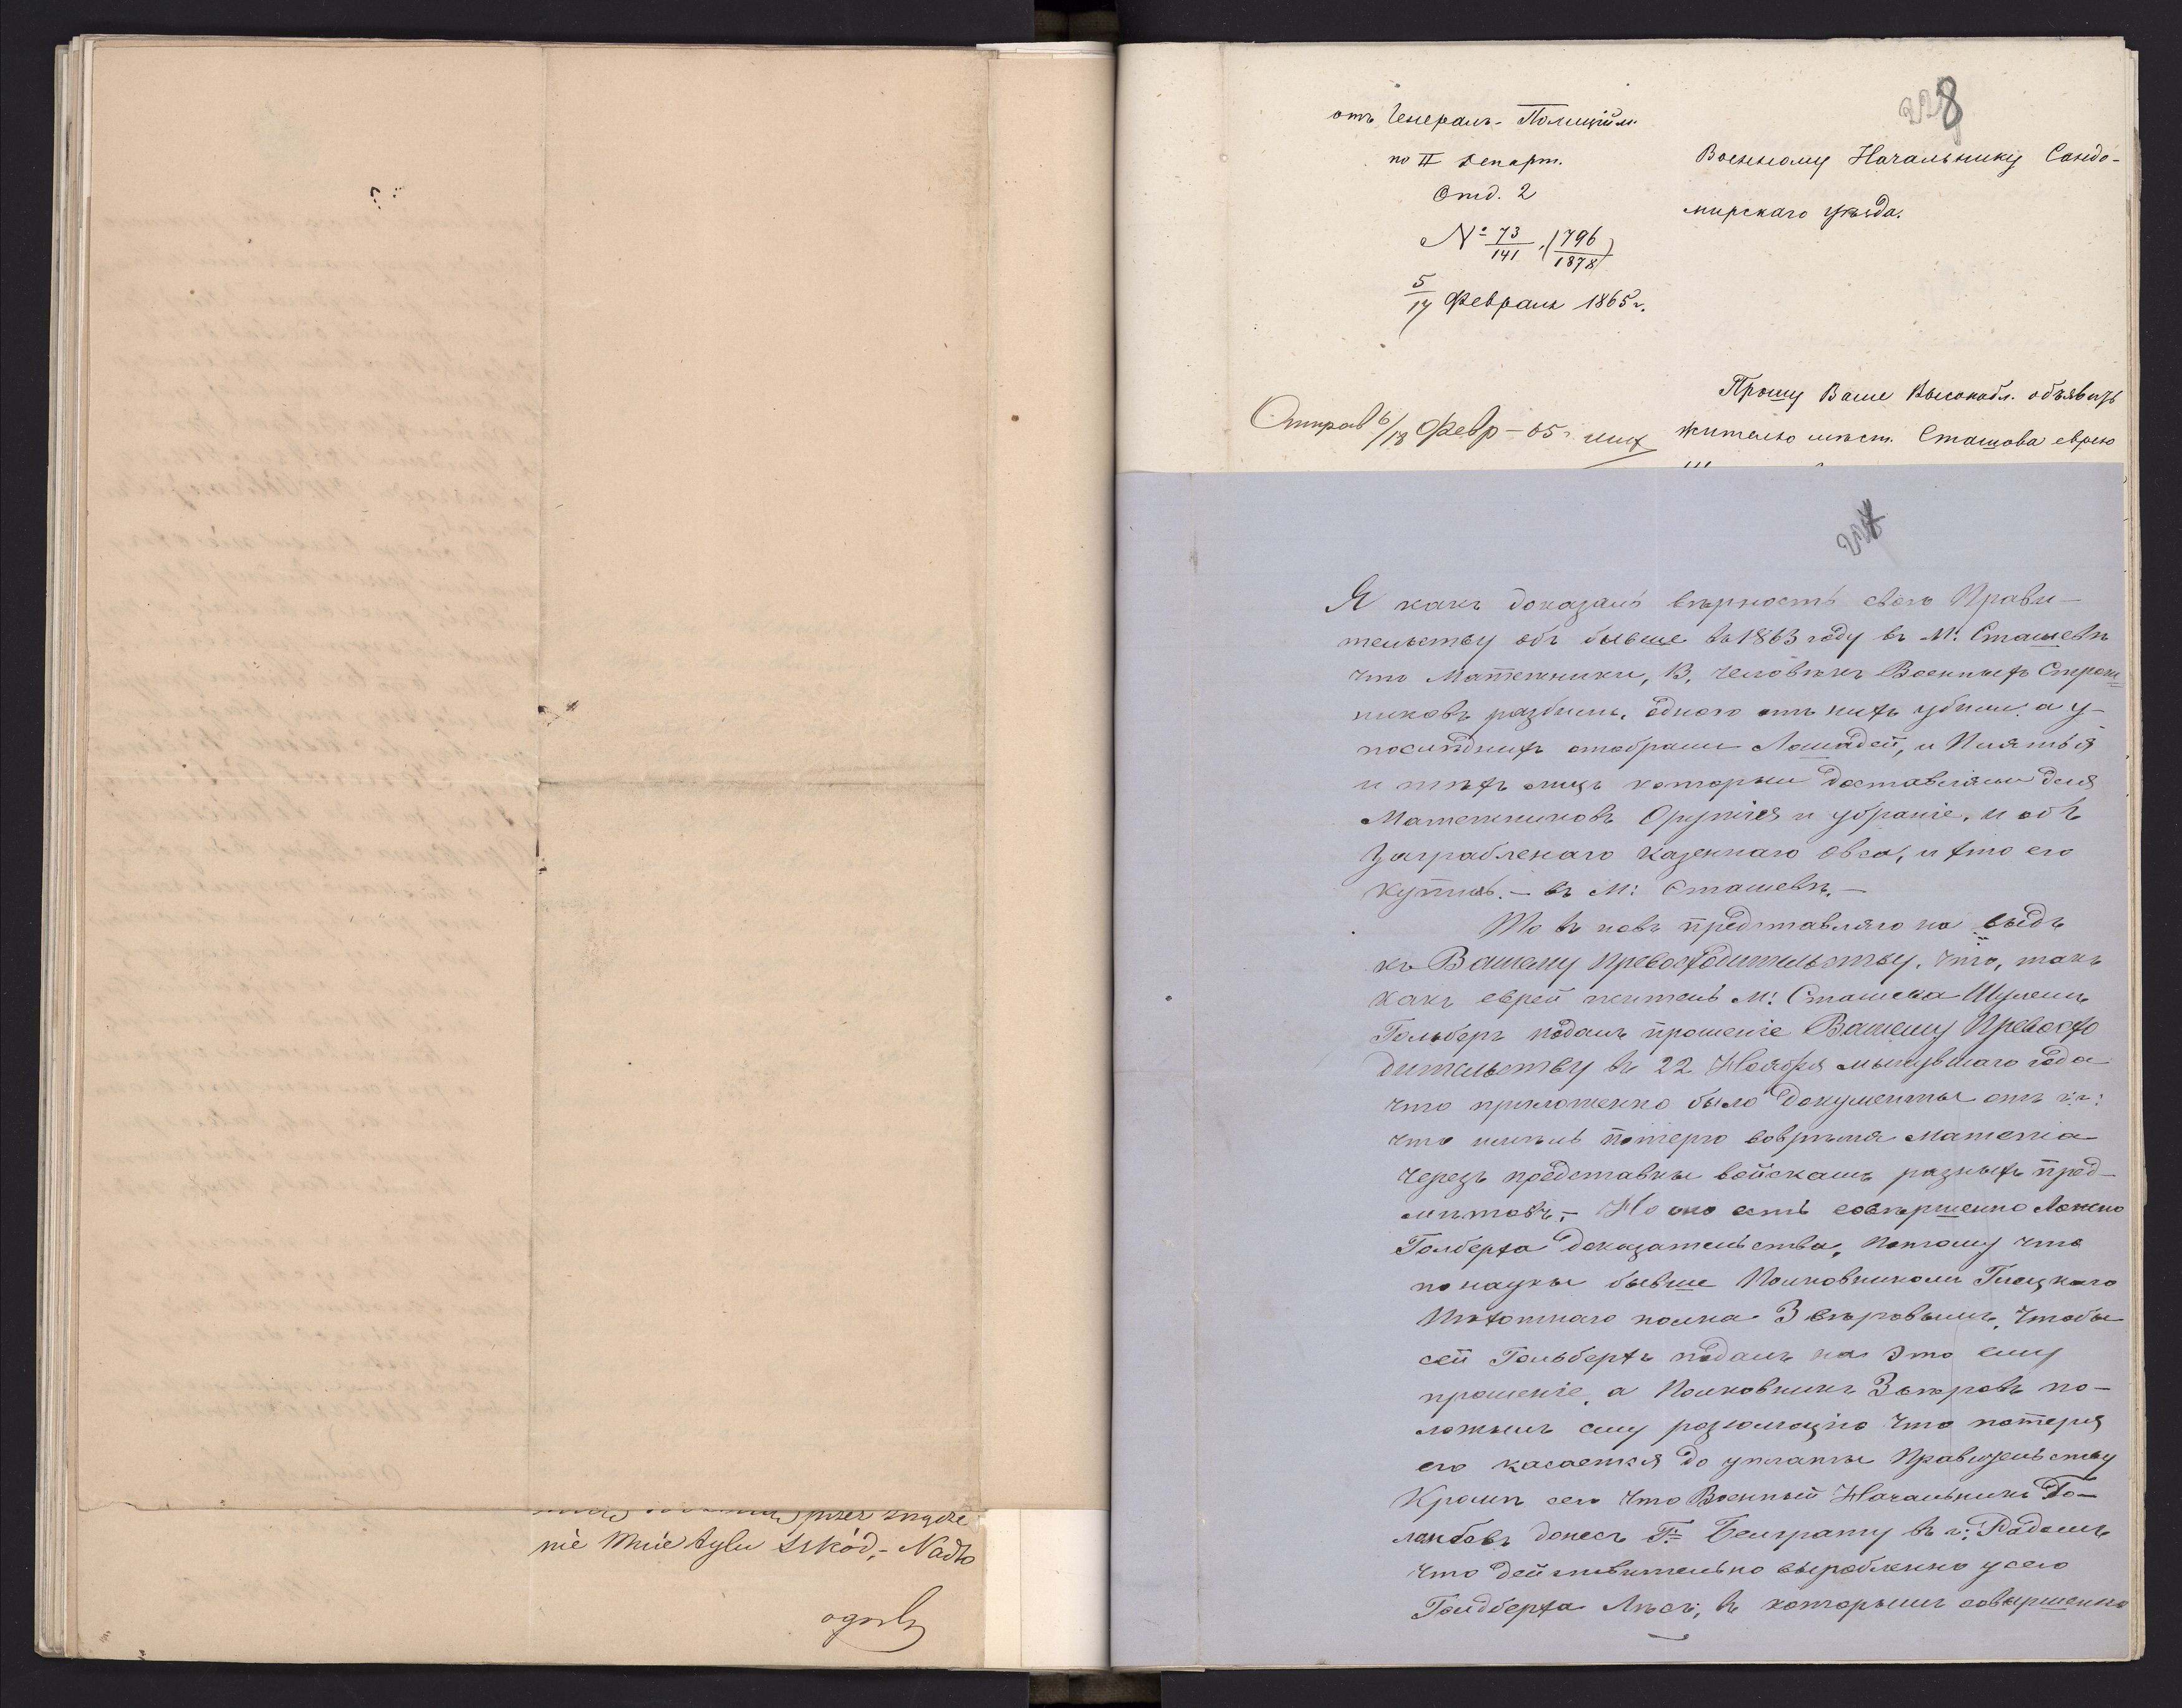 nie Mnie tylu szkód,- Nadto
228
отъ Генералъ-Полиційм.
по II Департ.
Отд. 2
№ 73/141 (796/1878)
5/17 Февраля 1865 г.
Военному Начальнику Сандо-
мирскаго уѣзда.
Прошу Ваше Высокобл. объявить
жителю мѣст. Сташова еврею
Отправ 6/18 Февр-65 г.
227
Я какъ доказалъ вѣрность свою Прави-
тельству объ бывше въ 1863 году въ М: Сташевѣ
что Матежники, 13, человѣкъ Военныхъ Страж-
никовъ разбили, одного отъ нихъ убили, а у-
послѣднихъ отобрали Лошадей, и Платья
и тѣхъ лицъ которыи доставляли для
Матежниковъ Оружія и убраніе, и объ
Заграбленаго казеннаго Овса, и кто его
купилъ.- въ М: Сташевѣ.-
То въ новъ представляю на видъ
къ Вашему Превосходительству, что, такъ
какъ еврей житель М: Сташева Шулемъ
Гольберг подалъ прошеніе Вашему Превосхо
дительству въ 22 Ноября мынувшаго года
что приложенно было документы отъ
что имѣлъ потерю вовремя матежа
черезъ представкы войскамъ разныхъ пред-
метовъ,- Но оно есть совѣршенно Ложно
Голберха доказательства, потому что
по наукы бывше Полковникомъ Галицкаго
Пѣхотнаго полка Звѣровымъ, чтобы
сей Гольберхъ подалъ на это ему
прошеніе, а Полковникъ Звѣровъ по-
ложилъ ему розолюцію что потеря
его касается до уплаты Правительству
Кромѣ сего что Военный Начальникъ Го-
лубовъ донесъ Гну Белграту въ г: Радомъ
что действительно вырабленно у сего
Голдберха Лѣсъ, въ которымъ совершенно